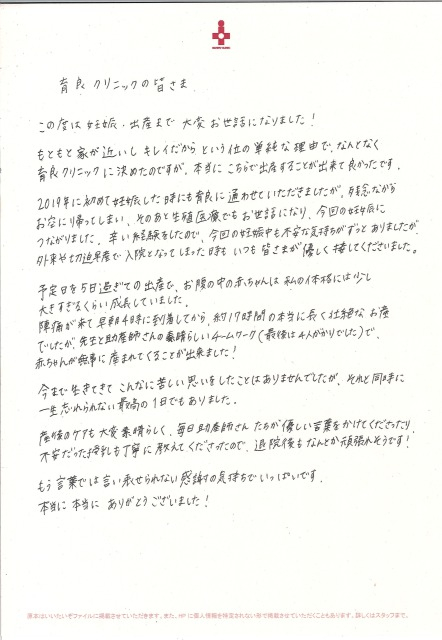 育良クリニックの皆さま
この度は妊娠・出産まで大変お世話になりました！
もともと家が近いしキレイだからという位の単純な理由で、なんとなく
育良クリニックに決めたのですが、本当にこちらで出産することが出来て良かったです。
2019年に初めて妊娠した時にも育良に通わせていただきましたが、残念ながら
お空に帰ってしまい、そのあと生殖医療でもお世話になり、今回の妊娠に
つながりました。辛い経験をしたので、今回の妊娠中も不安な気持ちがずっとありましたが
外来や切迫早産で入院となってしまった時も いつも皆さまが優しく接してくださいました。
予定日を5日過ぎての出産で、お腹の中の赤ちゃんは私の体格には少し
大きすぎるくらい成長していました。
陣痛が来て早朝4時に到着してから、約17時間の本当に長く壮絶なお産
でしたが、先生と助産師さんの素晴らしいチームワーク（最後は4人がかりでした）で、
赤ちゃんが無事に産まれてくることが出来ました！
今まで生きてきてこんなに苦しい思いをしたことはありませんでしたが、それと同時に
一生忘れられない最高の1日でもありました。
産後のケアも大変素晴らしく、毎日助産師さんたちが優しい言葉をかけてくださったり、
不安だった授乳も丁寧に教えてくださったので、退院後もなんとか頑張れそうです！
もう言葉では言い表せられない感謝の気持ちでいっぱいです。
本当に本当にありがとうございました！
原本はいいたいぞファイルに掲載させていただきます。また、HPに個人情報を特定されない形で掲載させていただくこともあります。詳しくはスタッフまで。